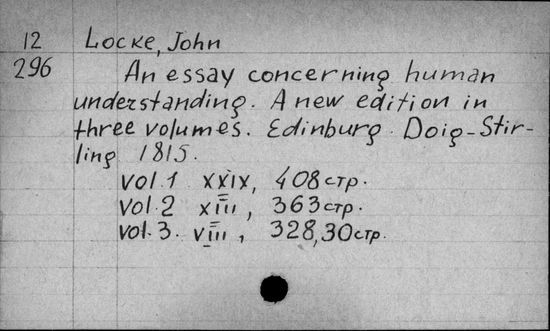 12 Locke, John
296 An essay concerning human
understanding. A new edition in
three volumes. Edinburg. Doig-Stir-
ling 1815.
vol.1 XXIX, 408 стр.
vol.2 XIII, 363 стр.
vol.3. VIII, 328,30 стр.